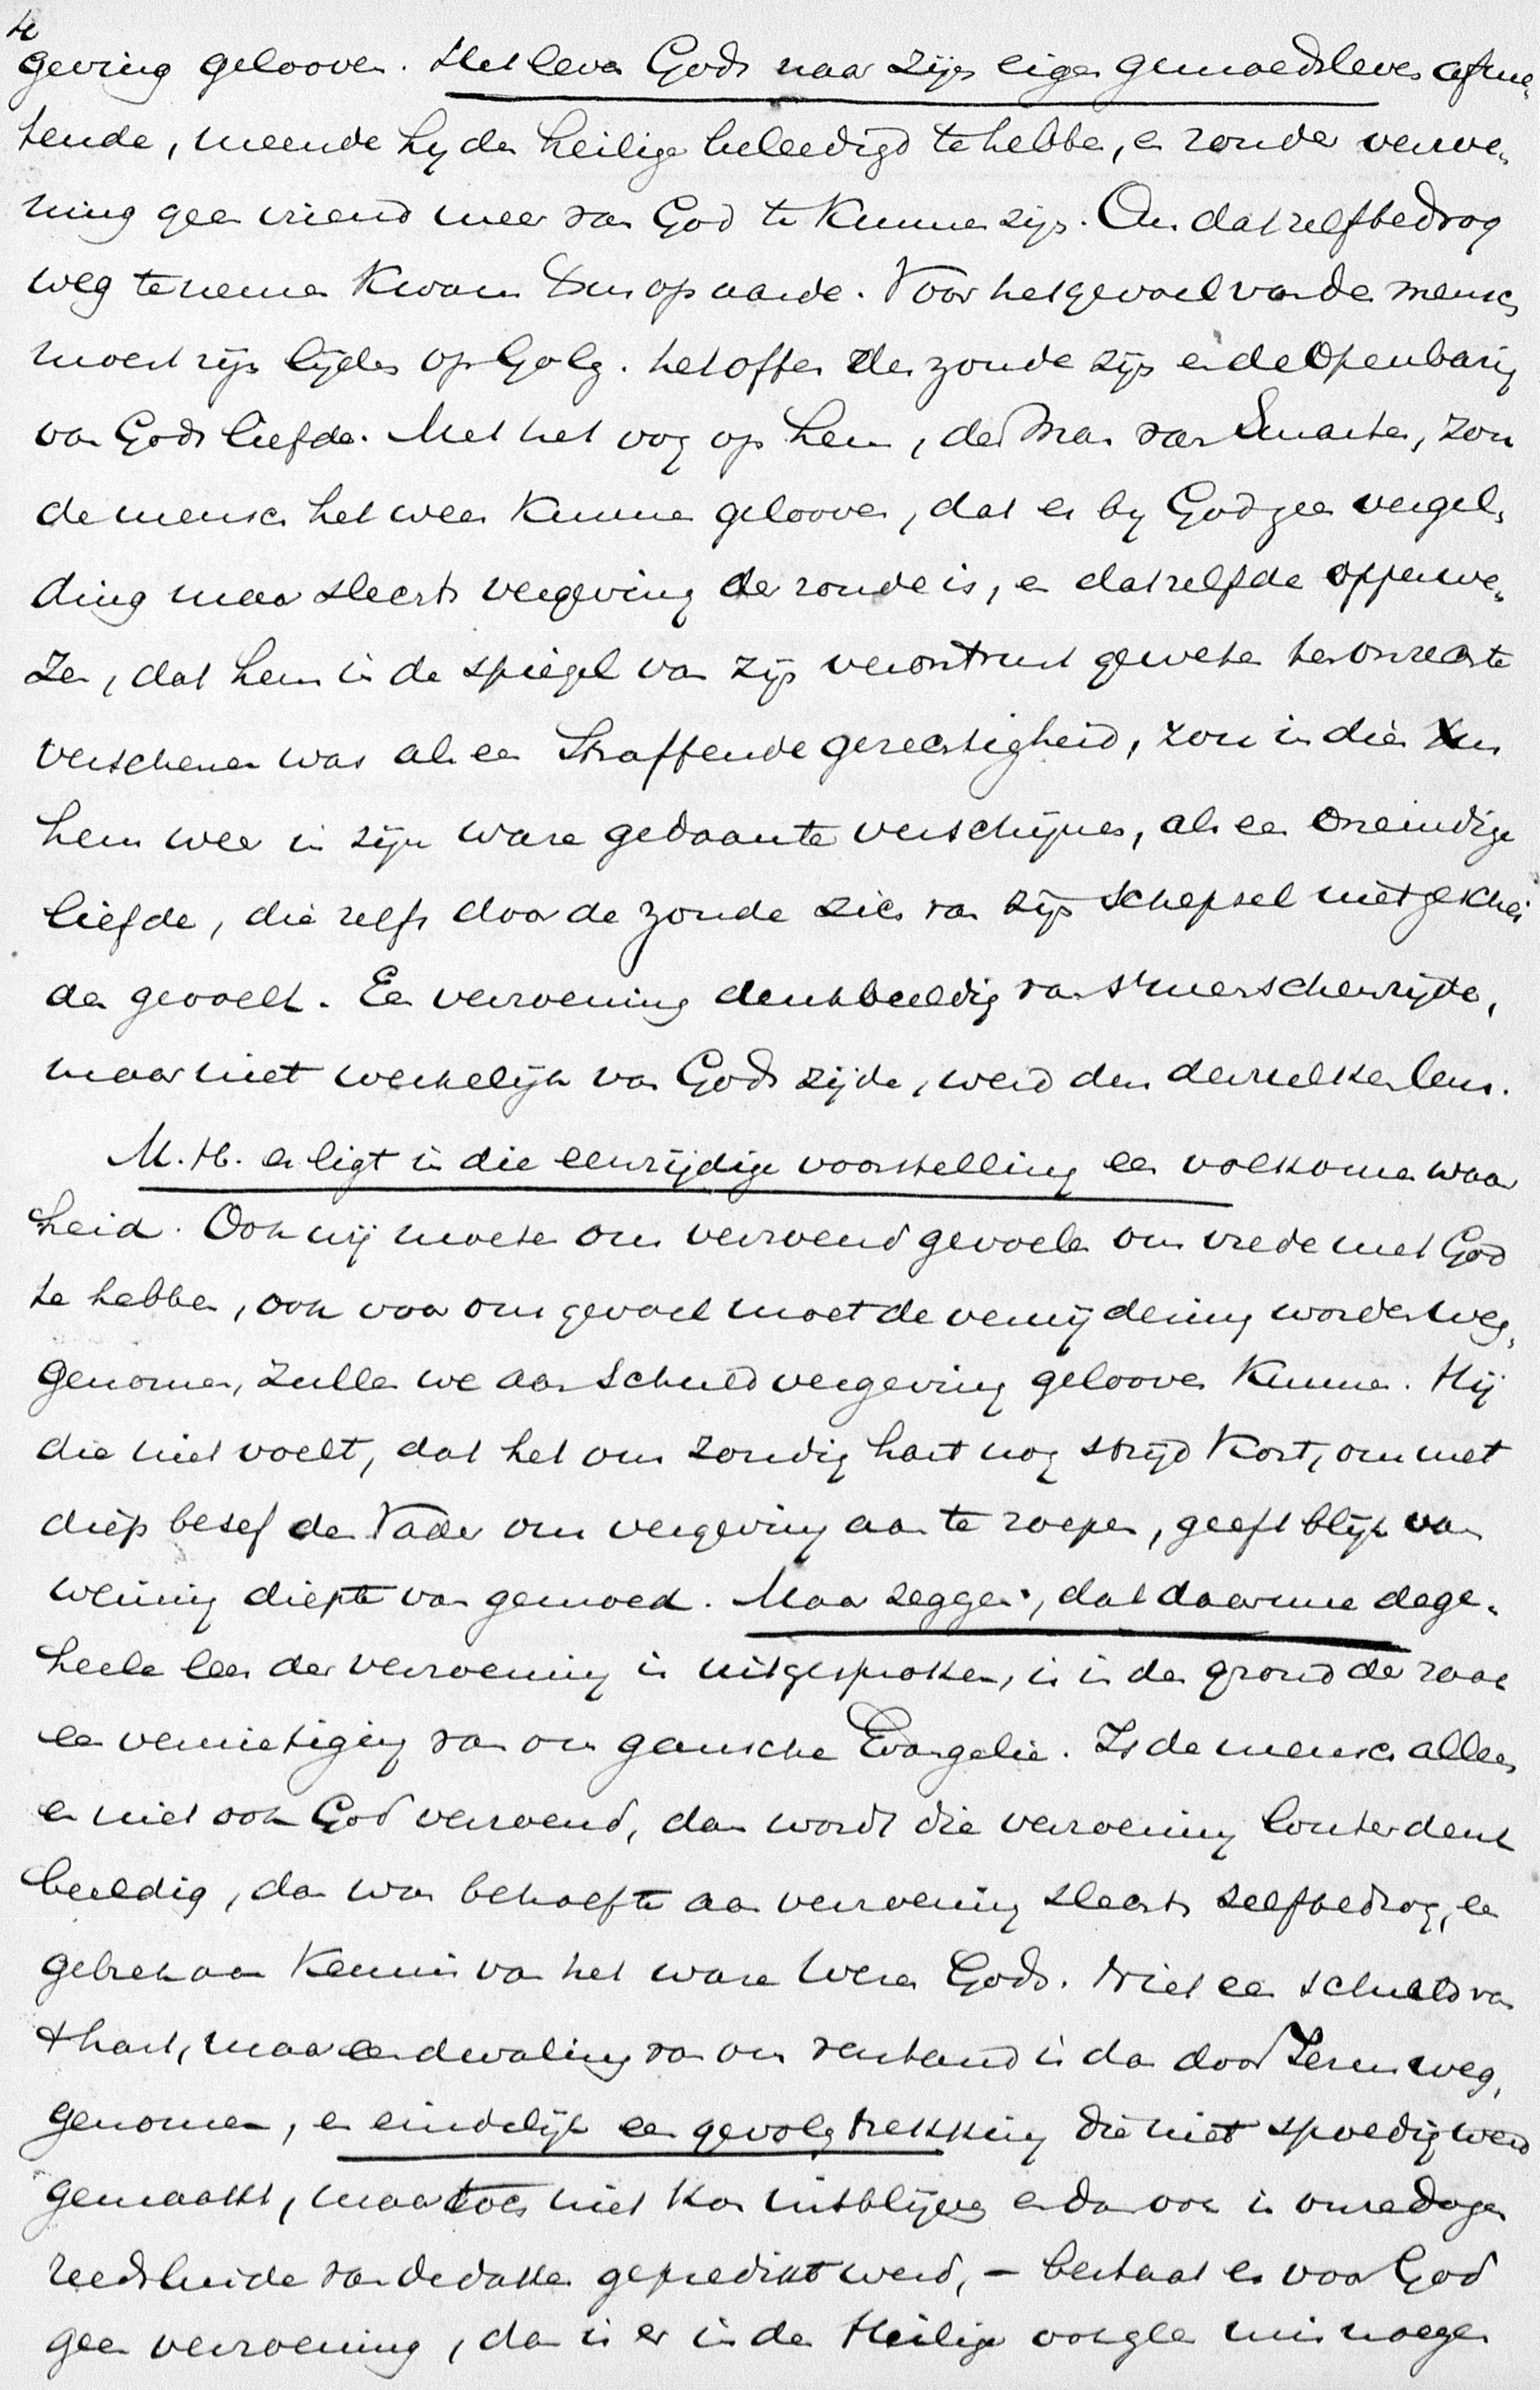 te
geving gelooven. Het leven Gods naar zijn eigen gemoedsleven afme-
tende, meende hy den Heilige beleedigd te hebben, en zonder verzoe-
ning geen vriend meer van God te kunnen zijn. Om dat zelfbedrog
weg te nemen kwam Xus op aarde. Voor het gevoel van den mensch
moest zijn lijden op Golg. het offer der zonde zijn en de Openbaring
van Gods liefde. Met het oog op hem, den Man van Smarten, zou
de mensch het weer kunnen gelooven, dat er by God geen vergel-
ding maar slechts vergeving der zonde is, en datzelfde opperwe-
zen, dat hem in de spiegel van zijn verontrust geweten ten onrechte
verschenen was als een Straffende gerechtigheid, zou in dien Xus
hem weer in zijn ware gedaante verschijnen, als een oneindige
liefde, die zelfs door de zonde zich van zijn schepsel niet geschei
den gevoelt. Een verzoening denkbeeldig van s'menschen zijde,
maar niet werkelijk van Gods zijde, werd dus derzulken leus.
M.H. er ligt in die eenzijdige voorstelling een volkomen waar
heid. Ook wij moeten ons verzoend gevoelen om vrede met God
te hebben, ook voor ons gevoel moet de verwijdering worden weg-
genomen, zullen we aan Schuldvergeving gelooven kunnen. Hij
die niet voelt, dat het ons zondig hart nog strijd kost, om met
diep besef den Vader om vergeving aan te roepen, geeft blijk van
weinig diepte van gemoed. Maar zeggen, dat daarmee de ge-
heele leer der verzoening is uitgesproken, is in den grond der zaak
een vernietiging van ons gansche Evangelie. Is de mensch alleen
en niet ook God verzoend, dan wordt die verzoening louter denk
beeldig, dan was behoefte aan verzoening slechts zelfbedrog, een
gebrek aan kennis van het ware Wezen Gods. Niet een schuld van
't hart, maar een dwaling van ons verstand is dan door Jezus weg-
genomen, en eindelijk een gevolgtrekking die niet spoedig werd
gemaakt, maar toch niet kon uitblijven en dan ook in onze dagen
reeds luide van de daken gepredikt werd, – bestaat er voor God
geen verzoening, dan is er in den Heilige ook geen misnoegen